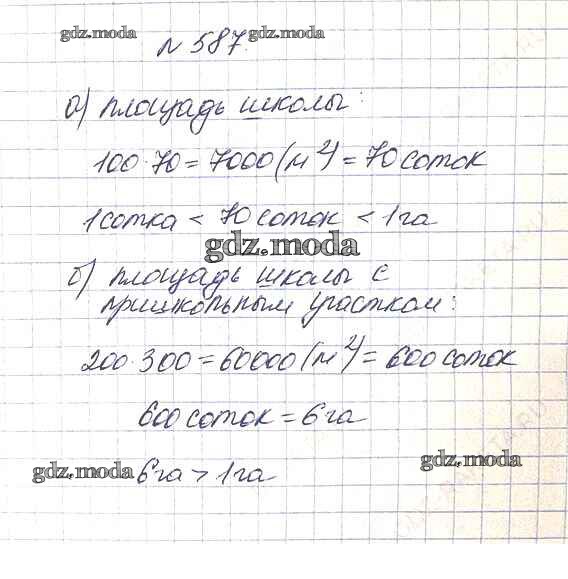 gdz.moda № 587. gdz.moda
а) площадь школы:
100·70 = 7000 (м²) = 70 соток
1 сотка < 70 соток < 1 га
gdz.moda
б) площадь школы с
пришкольным участком:
200·300 = 60000 (м²) = 600 соток
600 соток = 6 га
gdz.moda 6 га > 1 га gdz.moda